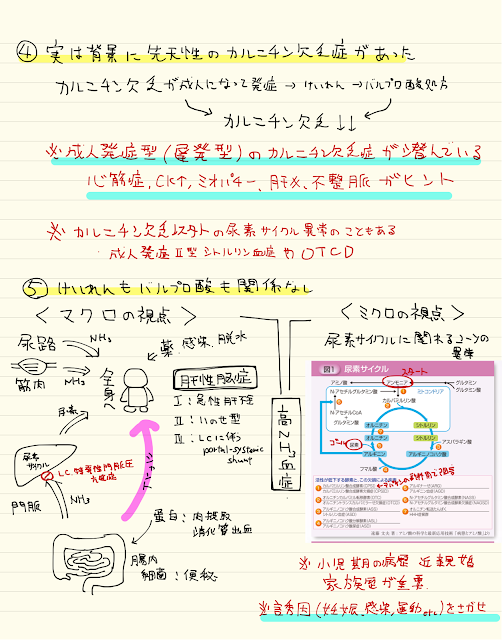 ④ 実は背景に先天性のカルニチン欠乏症があった
カルニチン欠乏が成人になって発症 → けいれん → バルプロ酸処方
カルニチン欠乏↓↓
※成人発症型(遅発型)のカルニチン欠乏症が潜んでいる
心筋症、CK↑、ミオパチー、肝✕、不整脈がヒント
※ カルニチン欠乏以外の尿素サイクル異常のこともある
成人発症Ⅱ型シトルリン血症やOTCD
⑤ けいれんもバルプロ酸も関係なし
<マクロの視点>
尿路
NH₃
筋肉
NH₃
全身へ
薬、感染、脱水
尿素
尿素サイクル
LC、特発性門脈圧亢進症
門脈
NH₃
腸内
シャント
肝性脳症
Ⅰ:急性肝不全
Ⅱ:いのせ型
Ⅲ:LCに伴う
portal-systemic
shunt
蛋白:肉摂取
消化管出血
細菌:便秘
高NH₃血症
<ミクロの視点>
尿素サイクルに関わる
異常
図1 尿素サイクル
スタート
アミノ酸
アンモニア
グルタミン
グルタミン酸
N-アセチルグルタミン酸
ミトコンドリア
カルバミルリン酸
N-アセチルCoA
+
グルタミン酸
オルニチン
シトルリン
オルニチン
シトルリン
ゴール
尿素
アスパラギン酸
アルギニン
アルギニノコハク酸
フマル酸
※ 小児期の病歴
家族歴が重要
※誘因(妊娠、感染、運動etc)をさがせ